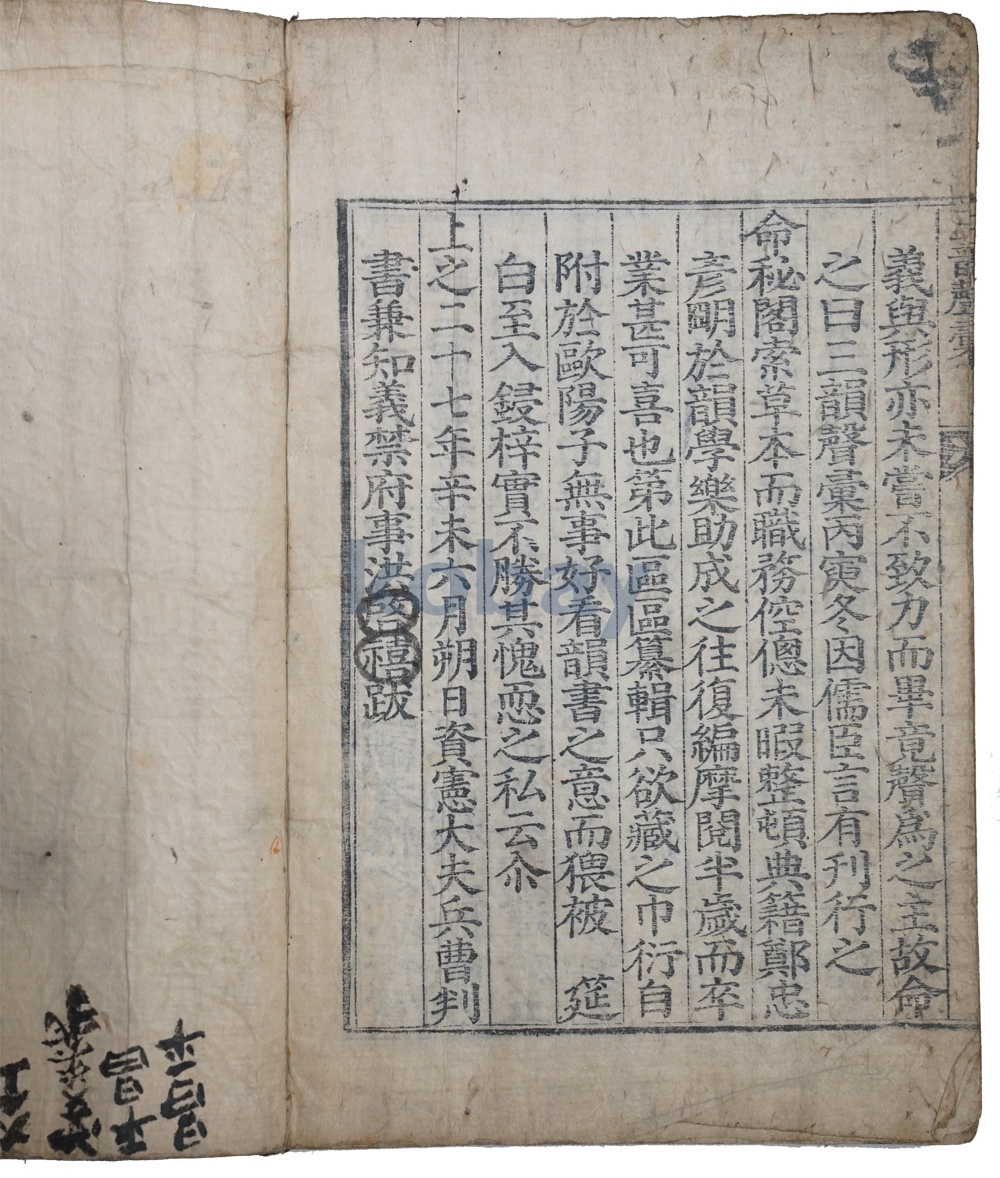 三韻聲彙
義與形亦未嘗不致力而畢竟聲爲之主故命
之曰三韻聲彙丙寅冬因儒臣言有刊行之
命秘閣索草本而職務倥傯未暇整頓典籍鄭忠
彦明於韻學樂助成之往復編摩閱半歲而卒
業甚可喜也第此區區纂輯只欲藏之巾衍自
附於歐陽子無事好看韻書之意而猥被 筵
白至入鋟梓實不勝其愧恧之私云尒
上之二十七年辛未六月朔日資憲大夫兵曹判
書兼知義禁府事洪啓禧跋
kobay